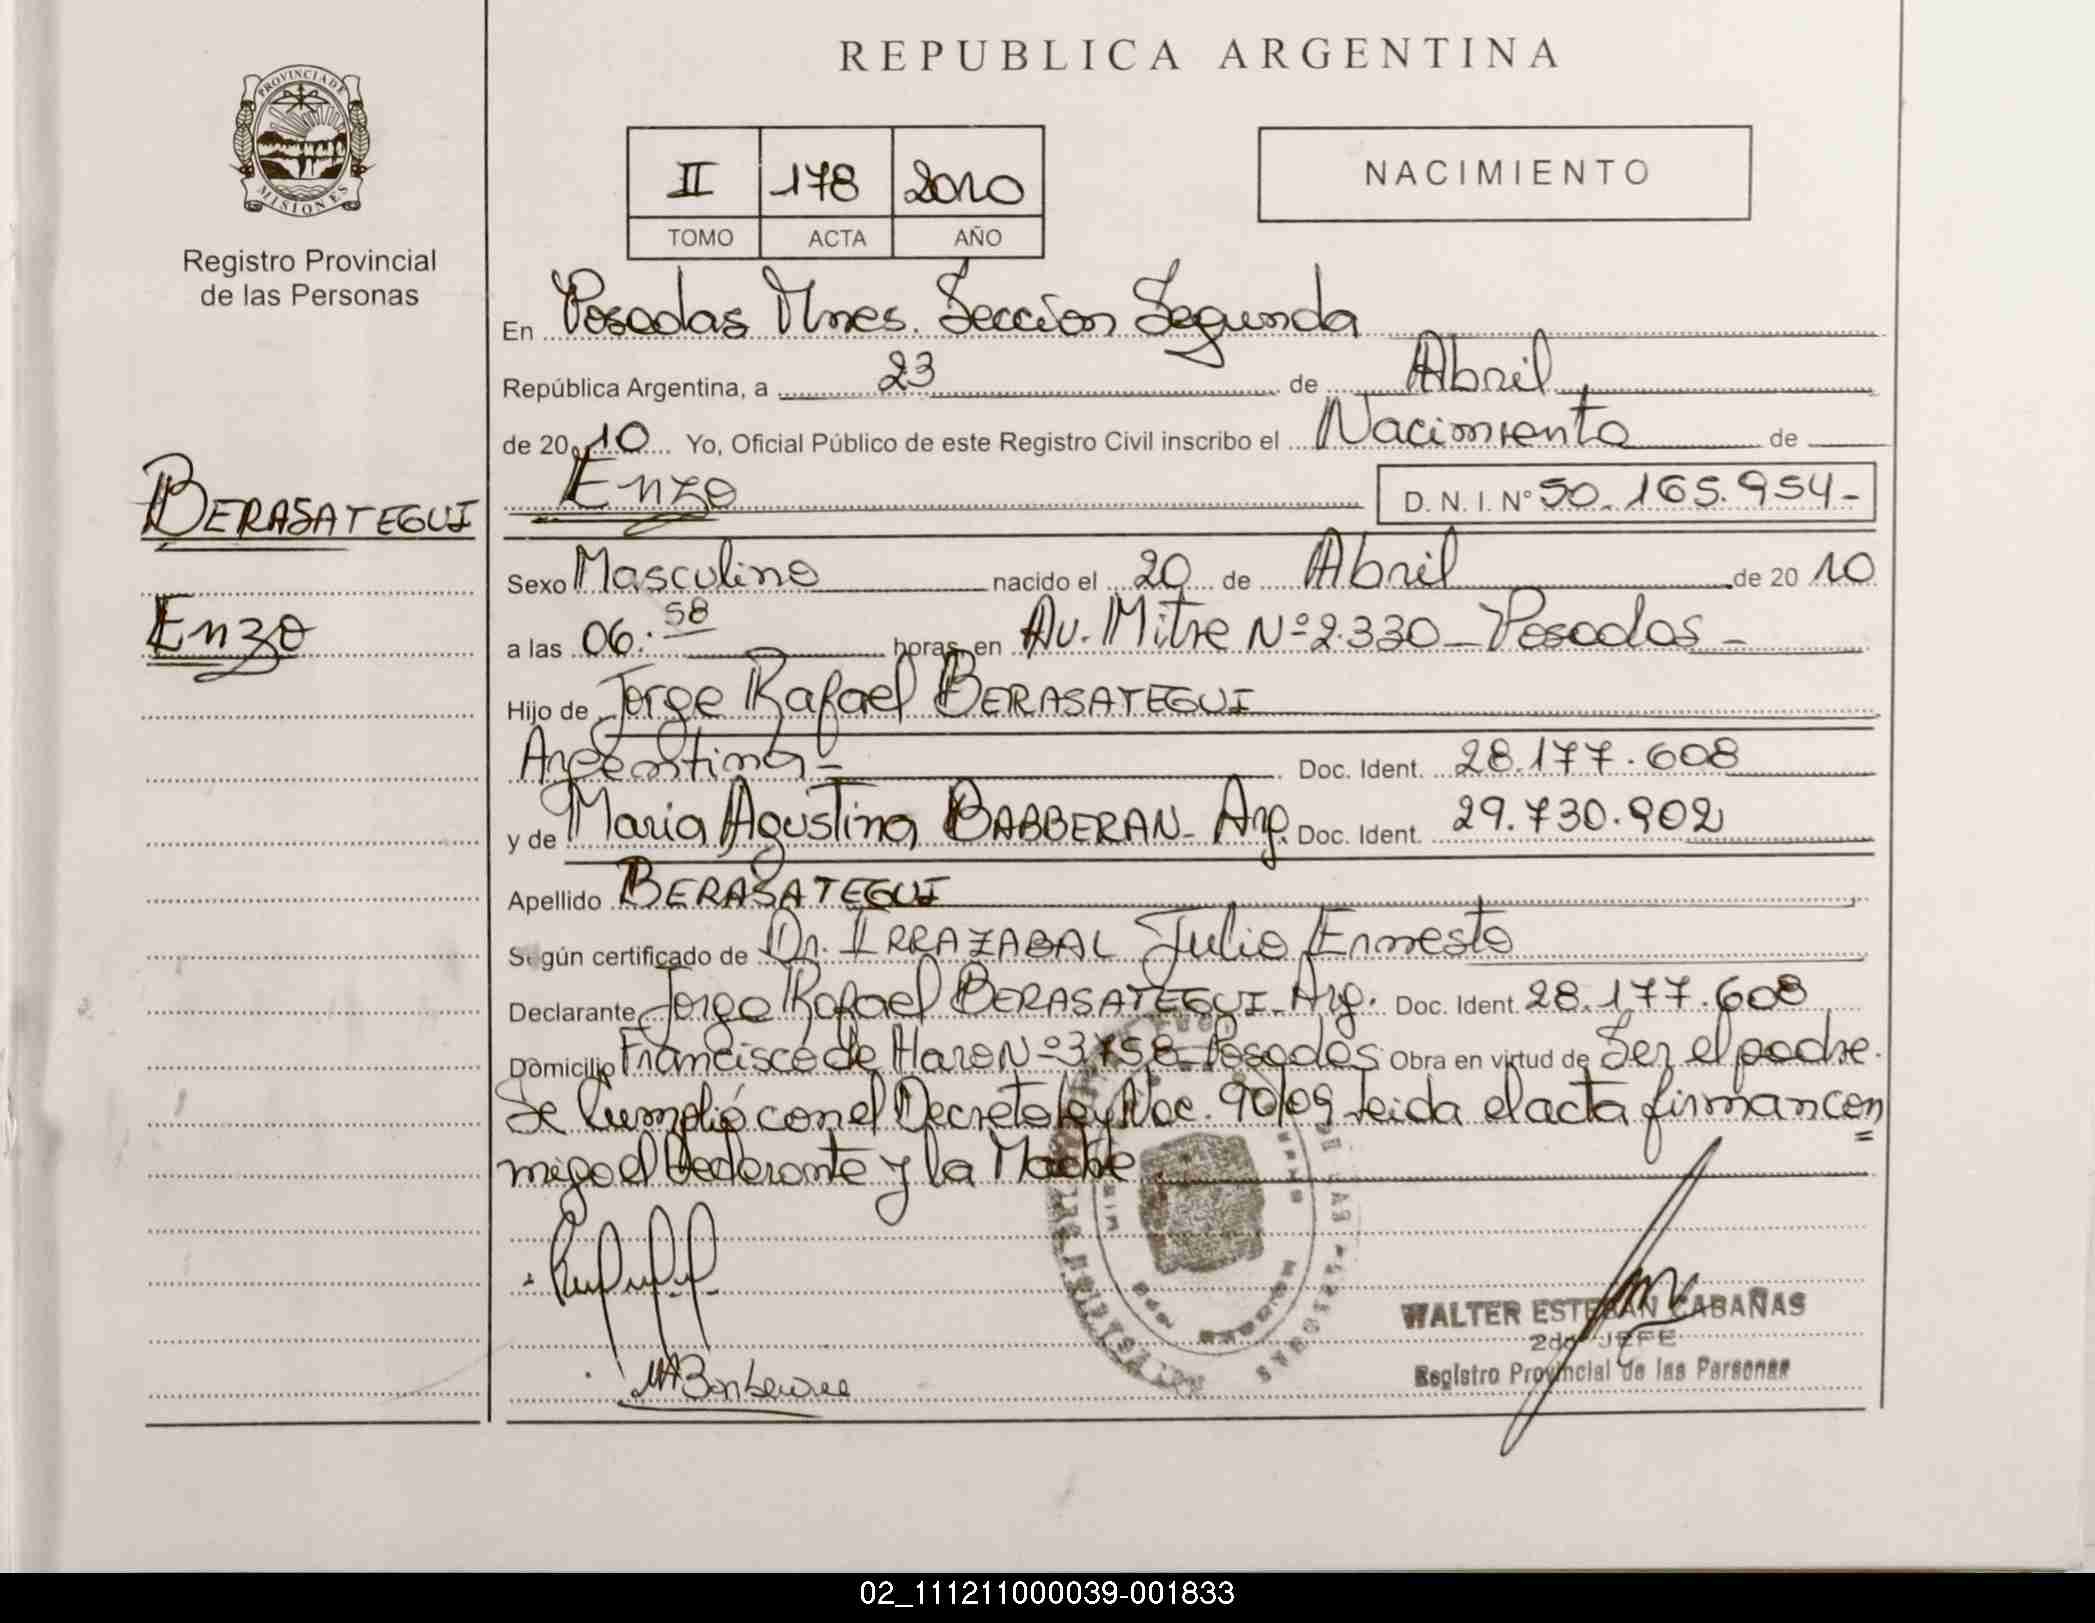 REPUBLICA ARGENTINA
PROVINCIA DE
MISIONES
Registro Provincial
de las Personas
II 178 2010
TOMO ACTA AÑO
NACIMIENTO
En Posadas Mnes. Sección Segunda
República Argentina, a 23 de Abril
de 20 10 Yo, Oficial Público de este Registro Civil inscribo el Nacimiento de
Enzo D. N. I. Nº 50.165.954-
BERASATEGUI
Enzo
Sexo Masculino nacido el 20 de Abril de 20 10
a las 06.58 horas en Av. Mitre Nº 2.330 - Posadas -
Hijo de Jorge Rafael BERASATEGUI
Argentina - Doc. Ident. 28.177.608
y de Maria Agustina BABBERAN - Arg. Doc. Ident. 29.730.902
Apellido BERASATEGUI
Según certificado de Dr. IRRAZABAL Julio Ernesto
Declarante Jorge Rafael BERASATEGUI - Arg. Doc. Ident. 28.177.608
Domicilio Francisco de Haro Nº 3758 - Posadas Obra en virtud de Ser el padre.
Se Cumplió con el Decreto Ley Nac. 90/09 Leida el acta firman con
migo el declarante y la Madre.
WALTER ESTEBAN CABAÑAS
2do JEFE
Registro Provincial de las Personas
02_111211000039-001833